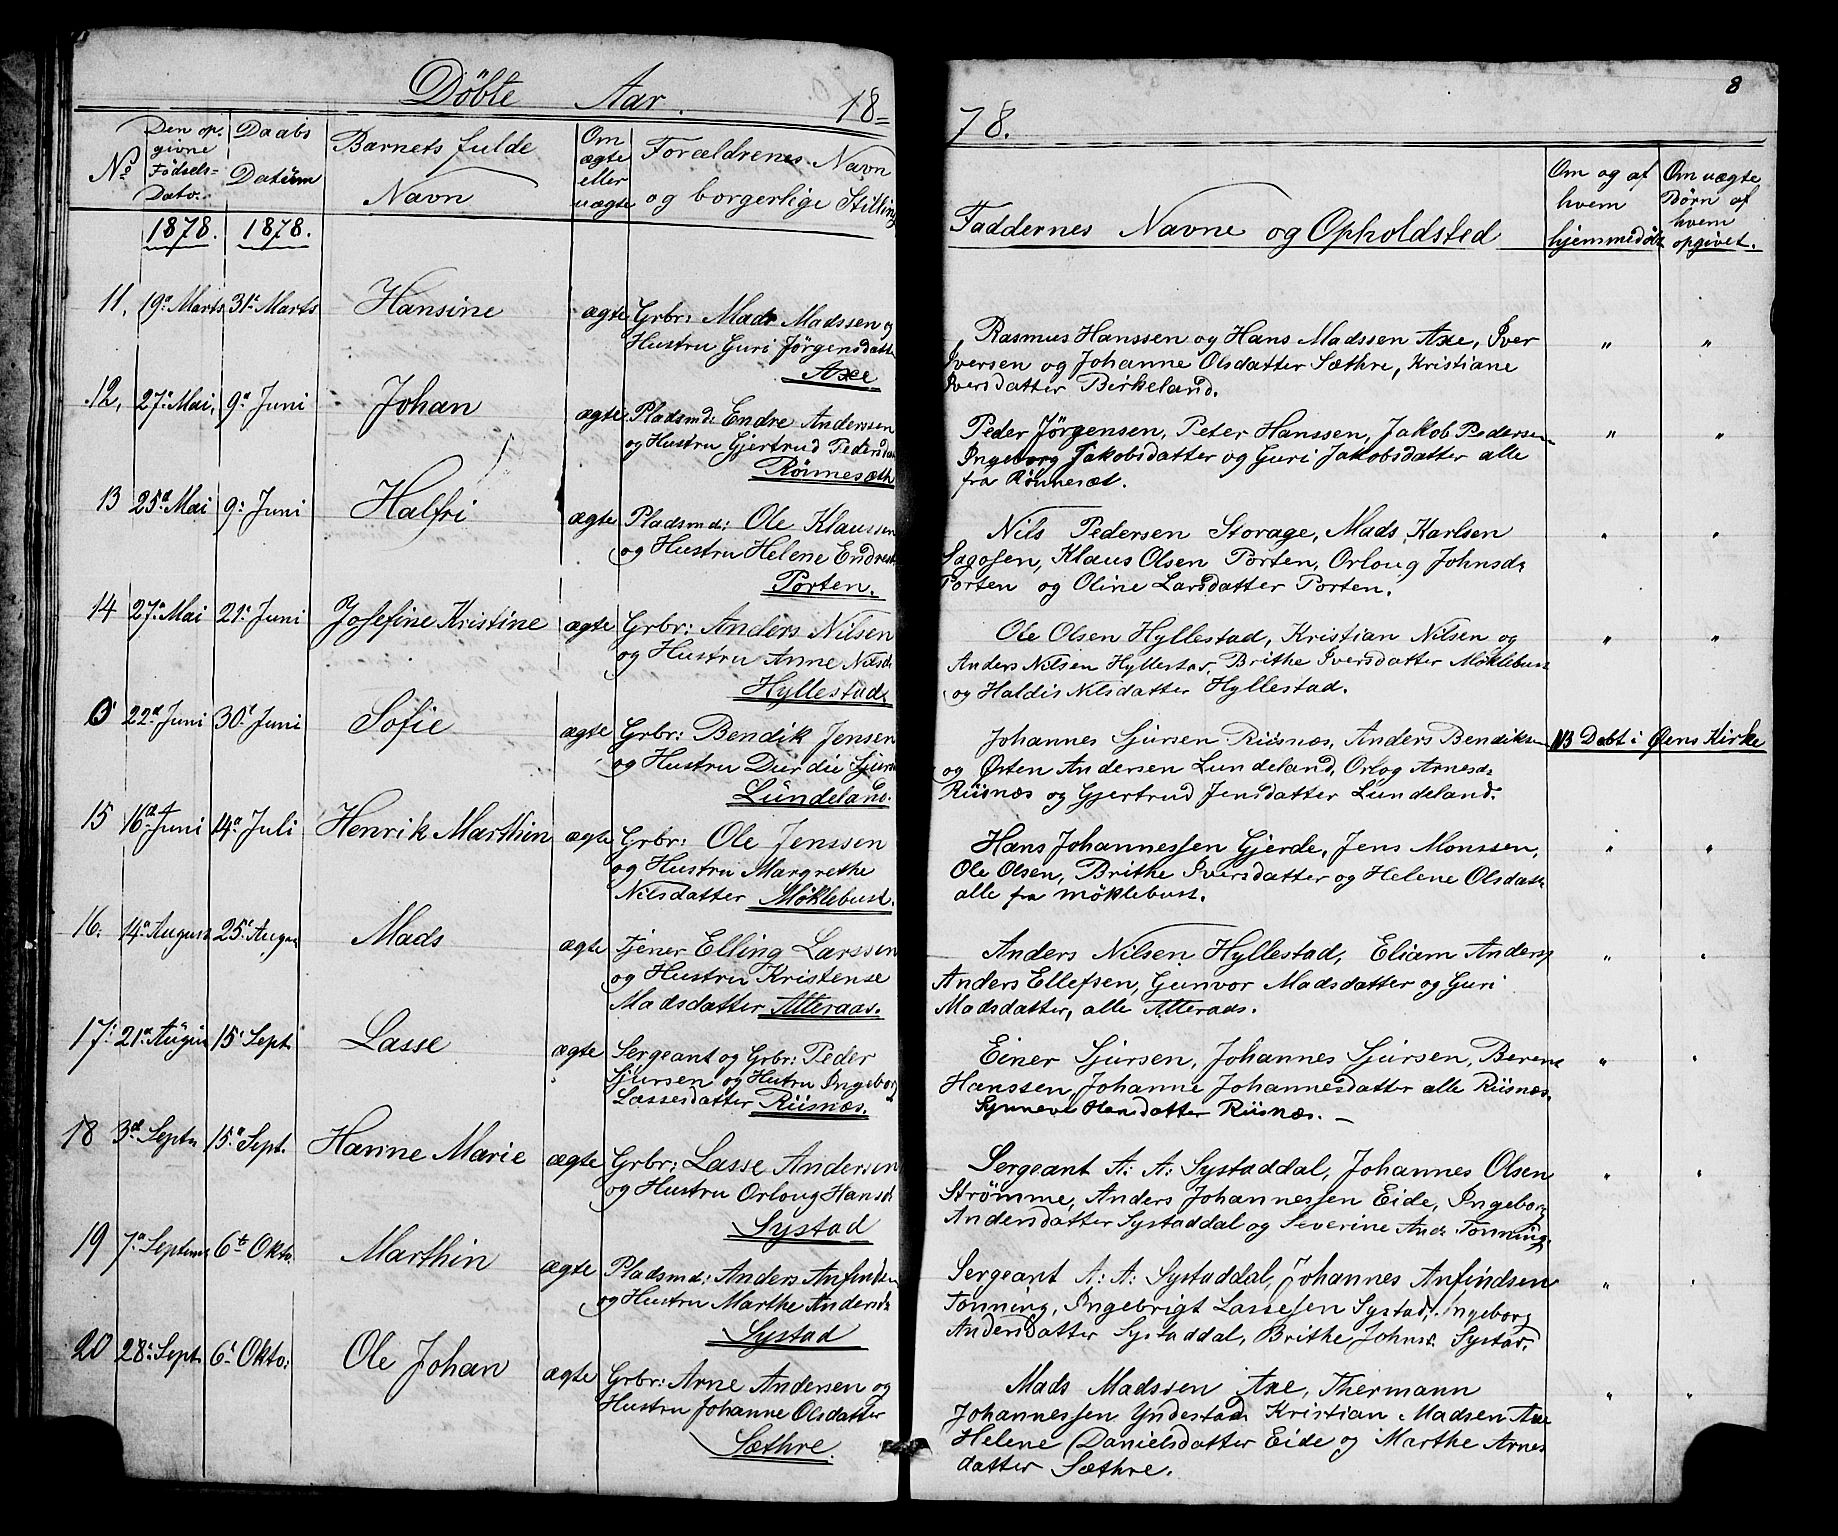 Döbte Aar. 18=
78.
8
No
Den op.
givne
Födsels=
Dato.
Daabs
Datum
Barnets fulde
Navn
Om
ægte
eller
uægte
Forældrenes Navn
og borgerlige Stilling
Faddernes Navne og Opholdsted
Om og af
hvem
hjemmedöbt
Om uægte
Börn af
hvem
opgivet.
1878. 1878.
11, 19de Marts 31te Marts Hansine ægte Grbr: Mads Madssen og
Hustru Guri Jörgensdatt
Axe
Rasmus Hanssen og Hans Madssen Axe, Iver
Iversen og Johanne Olsdatter Sæthre, Kristiane
Iversdatter Birkeland.
" "
12, 27: Mai, 9de Juni Johan ægte Pladsmd: Endre Anderssen
og Hustru Gjertrud Pedersdat
Rönnesæth
Peder Jörgensen, Peter Hanssen, Jakob Pedersen
Ingeborg Jakobsdatter og Guri Jakobsdatter alle
fra Rönnesæt.
" "
13 25de Mai 9: Juni Halfri ægte Pladsmd: Ole Klaussen
og Hustru Helene Endresd
Porten.
Nils Pedersen Storage, Mads Karlsen
Sagosen, Klaus Olsen Porten, Orloug Johnsd:
Porten og Oline Larsdatter Porten.
" "
14 27: Mai 21: Juni Josefine Kristine ægte Grbr: Anders Nilsen
og Hustru Anne Nilsd:
Hyllestad
Ole Olsen Hyllestad, Kristian Nilsen og
Anders Nilsen Hyllestad, Brithe Iversdatter Möklebust
og Haldis Nilsdatter Hyllestad.
" "
0 22de Juni 30: Juni Sofie ægte Grbr: Bendik Jensen
og Hustru Durdie Sjurs
Lundeland.
Johannes Sjursen Riisnæs, Anders Bendiksen
og Östen Andersen Lundeland, Orlog Arnesd:
Riisnæs og Gjertrud Jensdatter Lundeland.
NB Döbt i Öens Kirke
15 16de Juni 14de Juli Henrik Marthin ægte Grbr: Ole Jenssen
og Hustru Margrethe
Nilsdatter Möklebust.
Hans Johannessen Gjerde, Jens Monssen,
Ole Olsen, Brithe Iversdatter og Helene Olsdatt
alle fra möklebust.
" "
16. 14de August 25: August Mads ægte Tjener Elling Larssen
og Hustru Kristense
Madsdatter Atteraas.
Anders Nilsen Hyllestad, Eliam Anders
Anders Ellefsen, Gunvor Madsdatter og Guri
Madsdatter, alle Atteraas.
" "
17: 21de August 15: Sept: Lasse ægte Sergeant og Grbr: Peder
Sjursen og Hutru Ingeborg
Lassesdatter Riisnæs.
Einer Sjursen, Johannes Sjursen, Berent
Hanssen, Johanne Johannesdatter alle Riisnæs.
Synneve Hansdatter Riisnæs. —
" "
18 3de Septr 15: Sept. Hanne Marie ægte Grbr: Lasse Andersen
og Hustru Orloug Hansd:
Systad
Sergeant A: A: Systaddal, Johannes Olsen
Strömme, Anders Johannessen Eide, Ingeborg
Andersdatter Systaddal og Severine And: Tonning.
" "
19 7de Septem 6te Okto. Marthin ægte Pladsmd: Anders Anfindsen
og Hustru Marthe Andersd:
Systad
Sergeant A: A: Systaddal, Johannes Anfindsen
Tonning, Ingebrigt Lassesen Systad, Ingeborg
Andersdatter Systaddal, Brithe Johnsd: Systad.
" "
20 28: Sept. 6: Okto: Ole Johan ægte Grbr: Arne Andersen og
Hustru Johanne Olsdatter
Sæthre.
Mads Madssen Axe, Thermann
Johannessen Yndestad Kristian Madsen Axe
Helene Danielsdatter Eide og Marthe Arnes
datter Sæthre.
" "